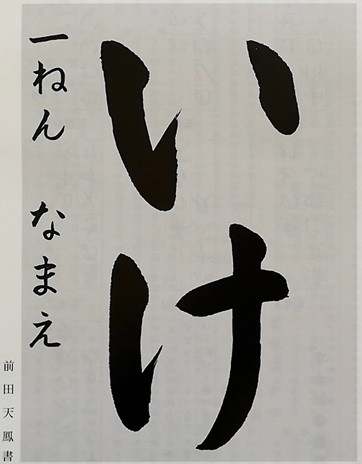 いけ
一ねん なまえ
前田天鳳書